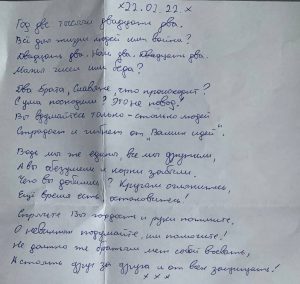 x 22.02.22 x
Год две тысячи двадцать два.
Всё для жизни людей или война?
Двадцать два. Ноль два. Двадцать два.
Магия чисел или беда?
Два брата, Славяне, что происходит?
С ума посходили? Это не повод!
Вы вдумайтесь только - столько людей
Страдает и гибнет от "Ваших идей".
Ведь мы же едины, все мы дружили,
А вы обезумели и корни забыли.
Чего вы добились? Кругом
Ещё время есть остановитесь!
Спрячьте Вы гордость и руки пожмите,
О невинных подумайте, им помогите!
Не должно же братьям меж собой воевать,
А стоять друг за друга и от всех защищать!
x x x